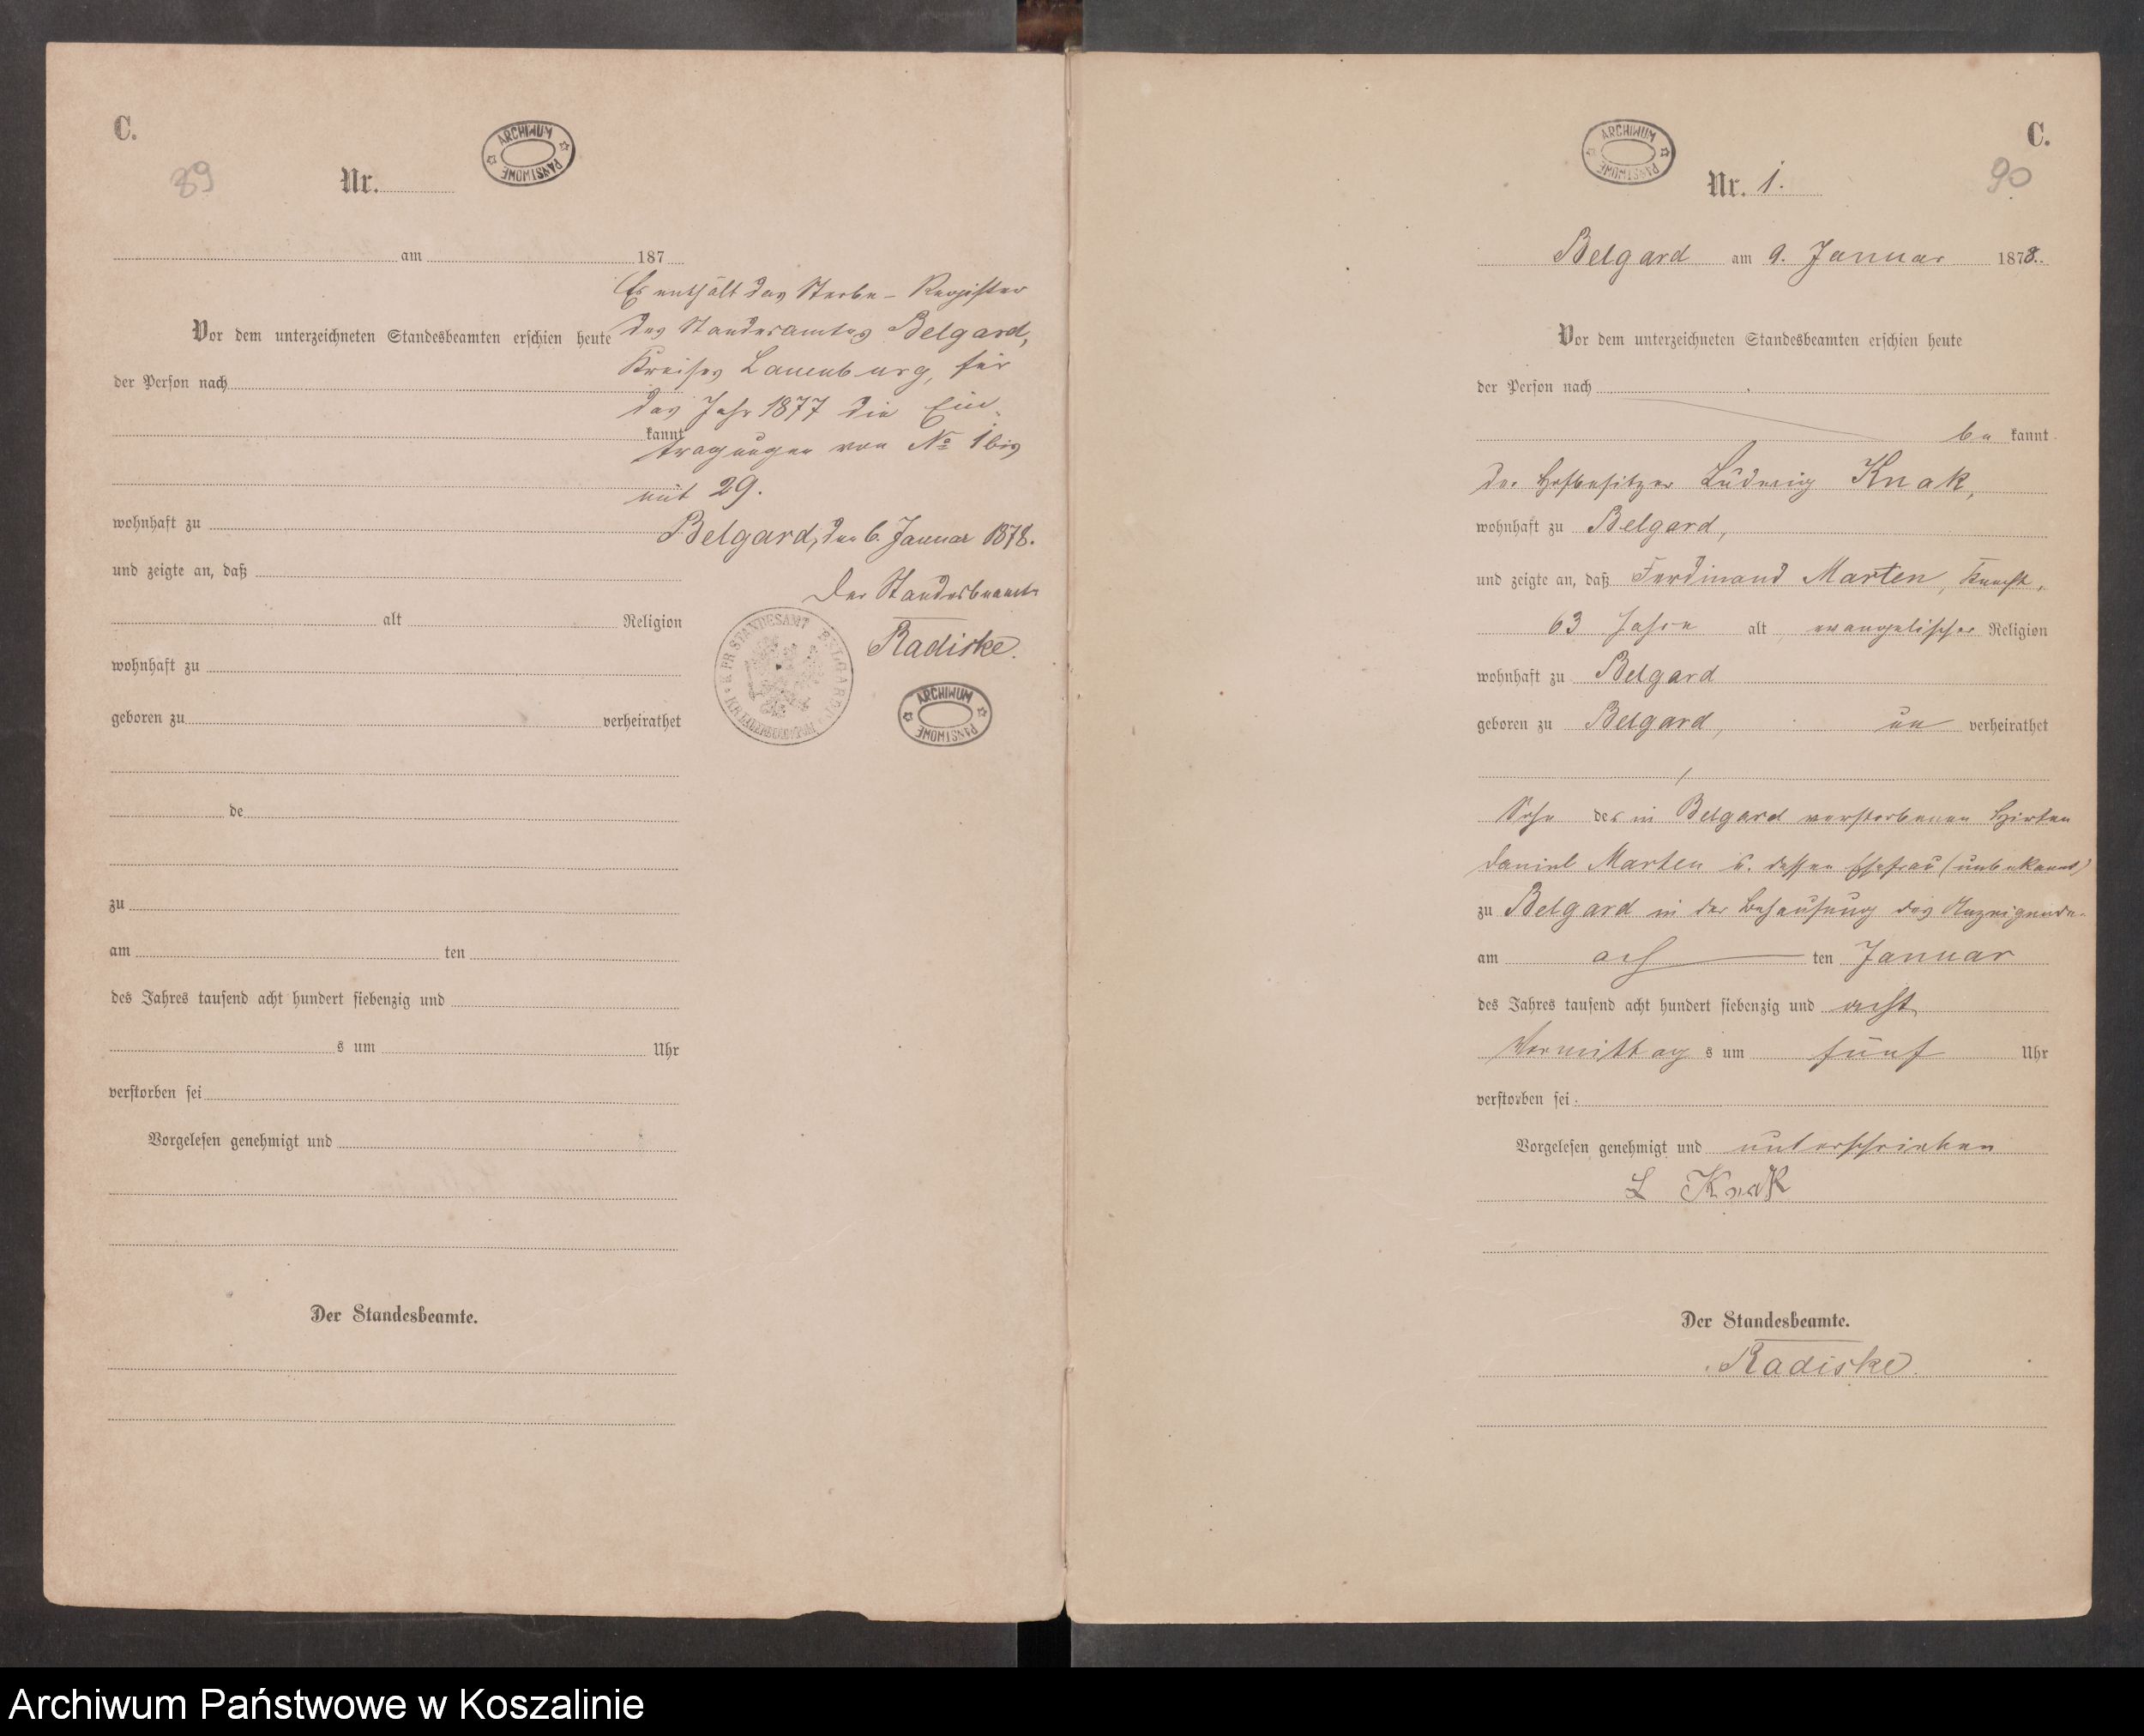 C.
89
Nr.
ARCHIWUM PAŃSTWOWE
am 187
Es enthält das Sterbe-Register
Vor dem unterzeichneten Standesbeamten erschien heute
des Standesamtes Belgard,
Kreises Lauenburg, für
der Person nach
das Jahr 1877 die Ein-
kannt
tragungen von No 1 bis
mit 29.
wohnhaft zu
Belgard, den 6. Januar 1878.
und zeigte an, daß
Der Standesbeamte
alt Religion
Radiske.
K. PR. STANDESAMT BELGARD
wohnhaft zu
ARCHIWUM PAŃSTWOWE
geboren zu verheirathet
de
zu
am ten
des Jahres tausend acht hundert siebenzig und
s um Uhr
verstorben sei
Vorgelesen genehmigt und
Der Standesbeamte.
C.
ARCHIWUM PAŃSTWOWE
90
Nr. 1.
Belgard am 9. Januar 1878.
Vor dem unterzeichneten Standesbeamten erschien heute
der Person nach
be kannt
der Hofbesitzer Ludwig Knak,
wohnhaft zu Belgard,
und zeigte an, daß Ferdinand Marten, Knecht,
63 Jahre alt, evangelischer Religion
wohnhaft zu Belgard
geboren zu Belgard, un verheirathet
Sohn des in Belgard verstorbenen Hirten
Daniel Marten u. dessen Ehefrau (unbekannt)
zu Belgard in der Behausung des Anzeigenden
am ach ten Januar
des Jahres tausend acht hundert siebenzig und acht
Vormittag s um fünf Uhr
verstorben sei.
Vorgelesen genehmigt und unterschrieben
L Knak
Der Standesbeamte.
Radiske.
Archiwum Państwowe w Koszalinie